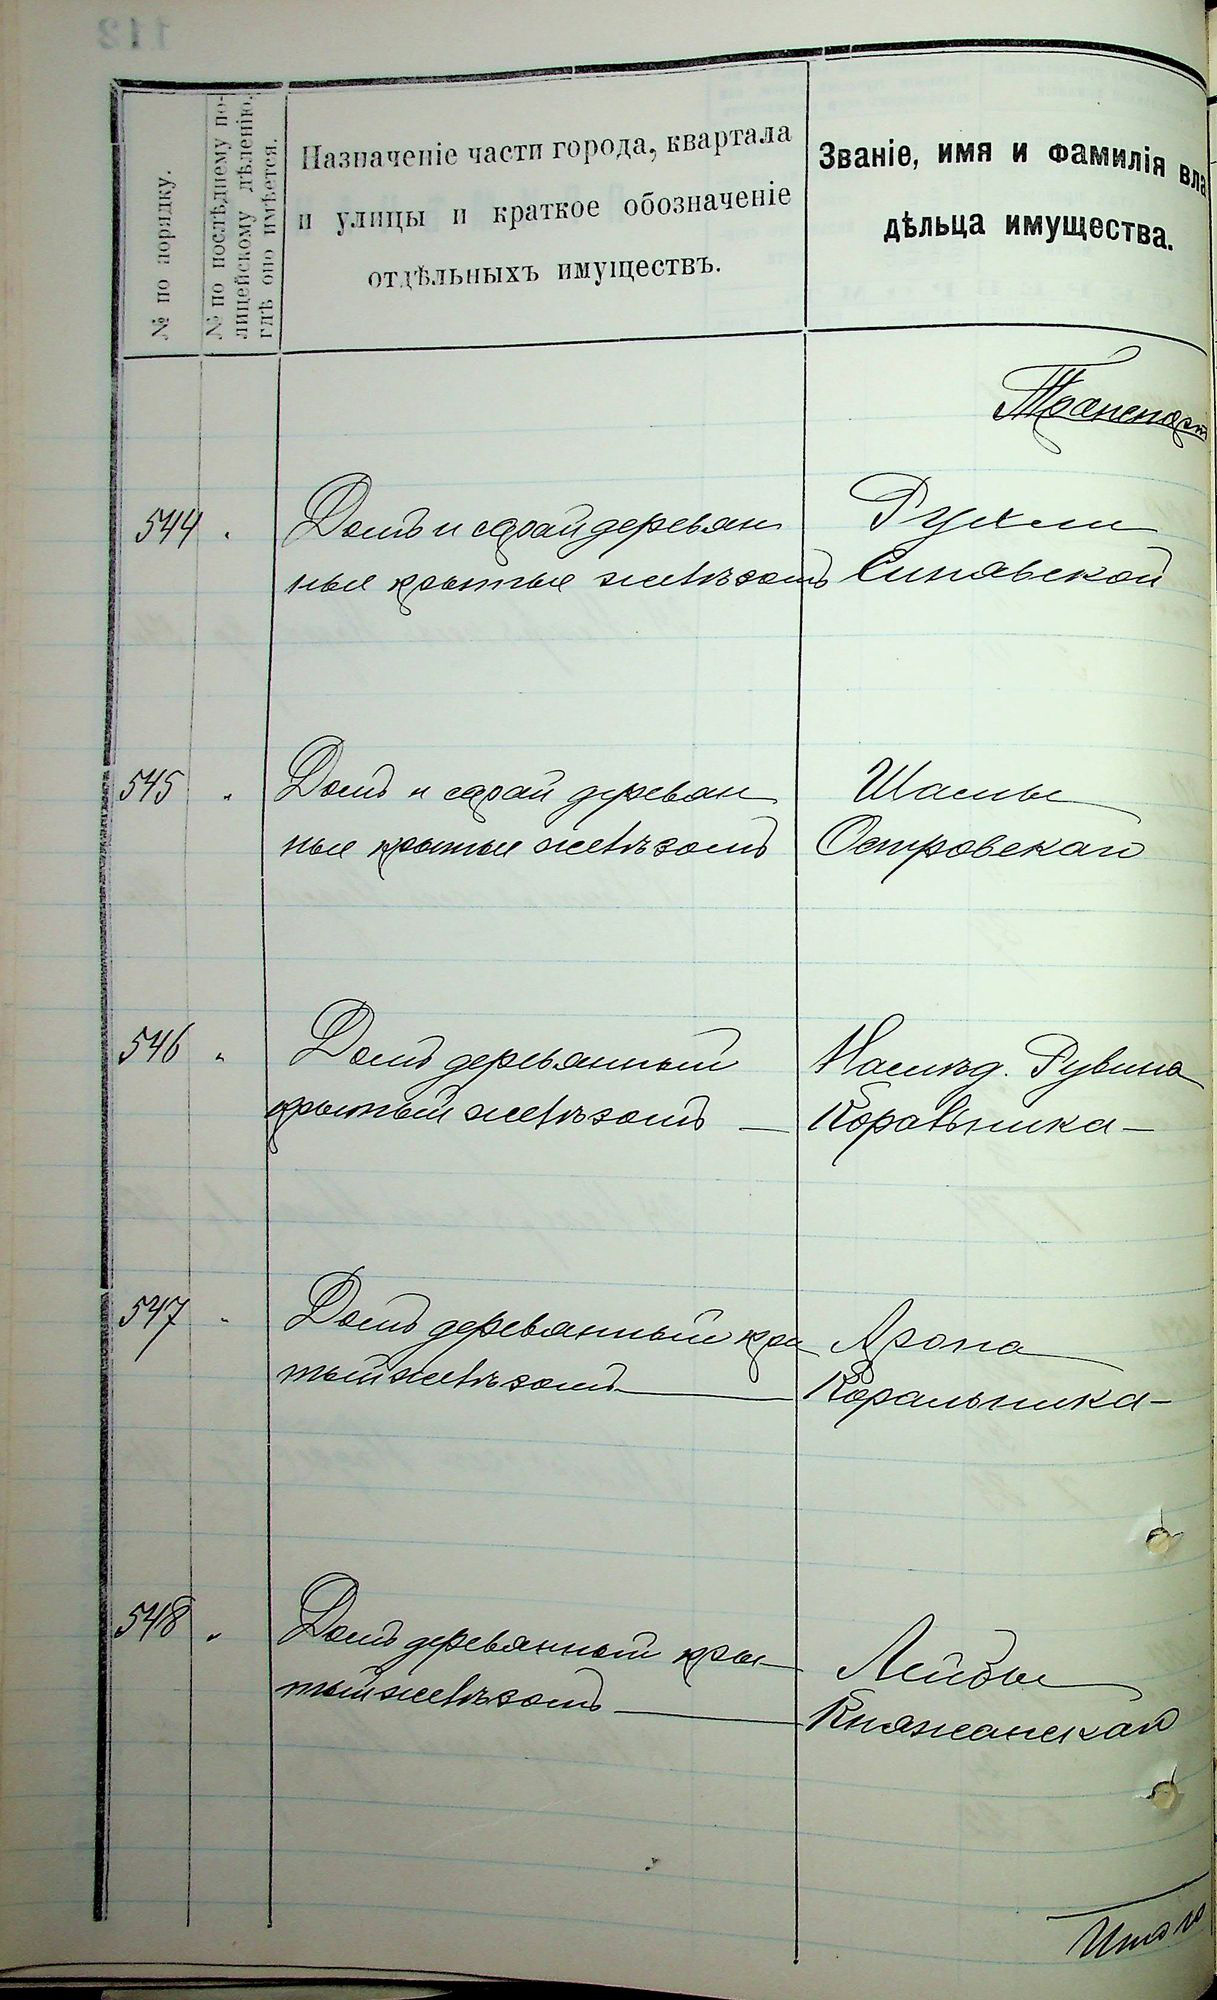 № по порядку.
№ по послѣднему по-
лицейскому дѣленію,
гдѣ оно имѣется.
Назначеніе части города, квартала
и улицы и краткое обозначеніе
отдѣльныхъ имуществъ.
Званіе, имя и фамилія вла
дѣльца имущества.
Транспортъ
544 " Домъ и сарай деревян Рухли
ные крытые желѣзомъ Синявской
545 " Домъ и сарай деревян Шамы
ные крытые желѣзомъ Островскаго
546 " Домъ деревянный Наслѣд. Рувина
крытый желѣзомъ — Коральника —
547 " Домъ деревянный кры Арона
тый желѣзомъ — Коральника —
548 " Домъ деревянный кры- Лейбы
тый желѣзомъ — Княжанскаго
Итого